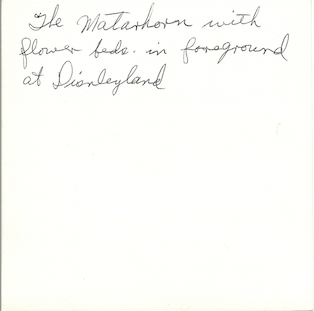 The Matarhorn with
flower beds. in foreground
at Disnleyland